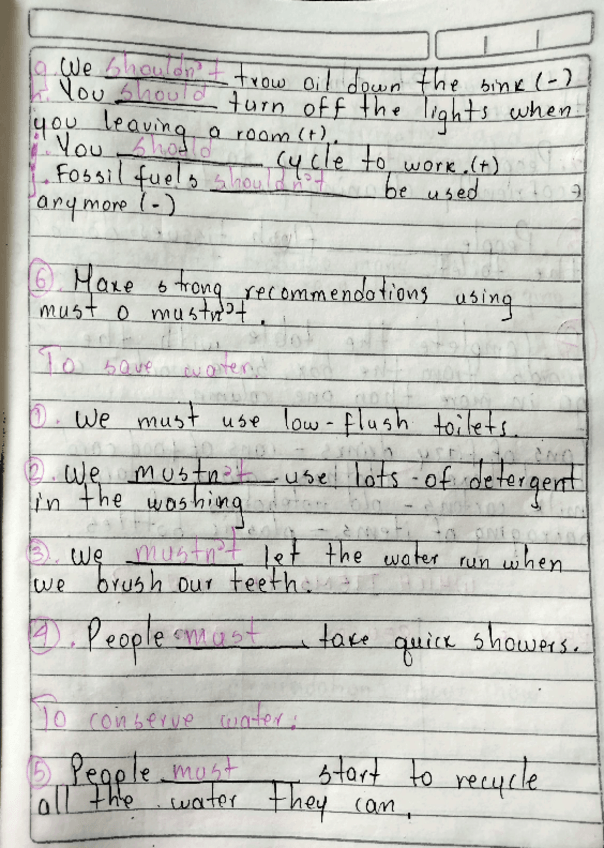 g. We shouldn't trow oil down the sink (-)
h. You should turn off the lights when
you leaving a room (+).
i. You should cycle to work. (+)
j. Fossil fuels shouldn't be used
anymore (-)
6. Make strong recommendations using
must o mustn't.
To save water:
1. We must use low-flush toilets.
2. We mustn't use lots of detergent
in the washing
3. We mustn't let the water run when
we brush our teeth.
4. People must take quick showers.
To conserve water:
5 People must start to recycle
all the water they can.